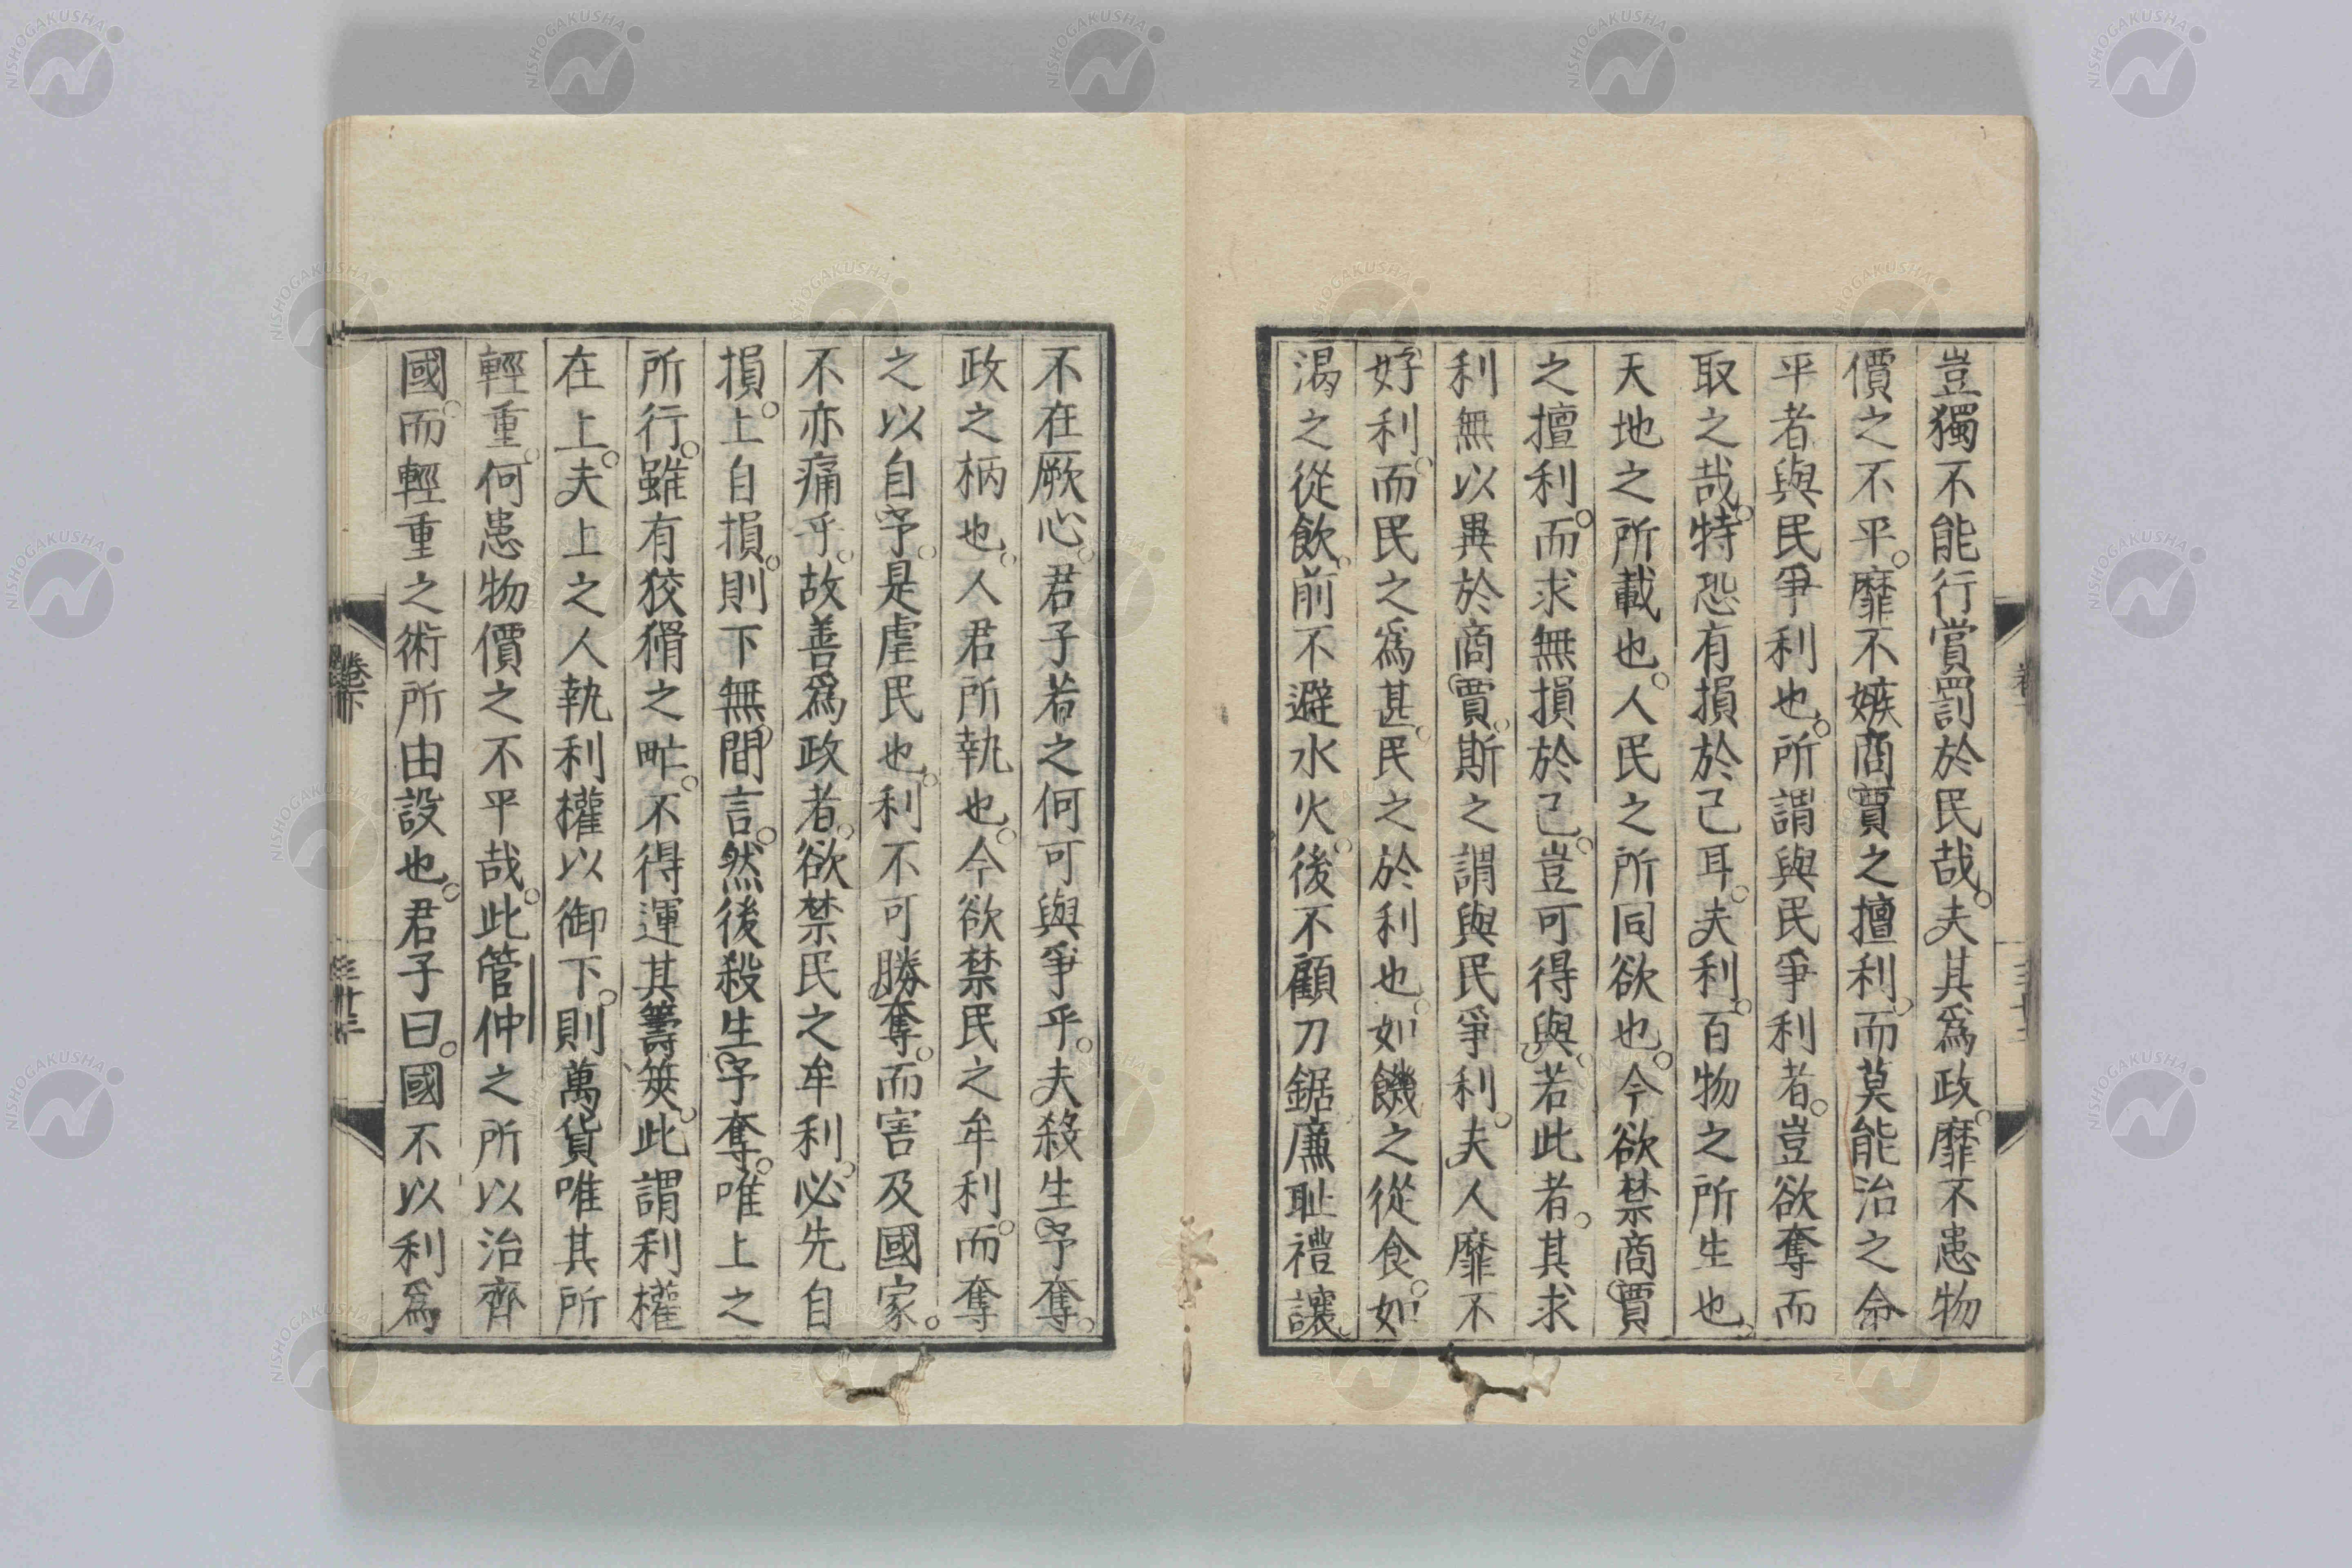 豈獨不能行賞罰於民哉。夫其爲政。靡不患物
價之不平。靡不嫉商賈之擅利。而莫能治之。命
平者與民爭利也。所謂與民爭利者。豈欲奪而
取之哉。特恐有損於己耳。夫利。百物之所生也。
天地之所載也。人民之所同欲也。今欲禁商賈
之擅利。而求無損於己。豈可得與。若此者。其求
利無以異於商賈。斯之謂與民爭利。夫人靡不
好利。而民之爲甚。民之於利也。如饑之從食。如
渴之從飲。前不避水火。後不顧刀鋸。廉耻禮讓。
不在厥心。君子若之何可與爭乎。夫殺生予奪。
政之柄也。人君所執也。今欲禁民之牟利。而奪
之以自予。是虐民也。利不可勝奪。而害及國家。
不亦痛乎。故善爲政者。欲禁民之牟利。必先自
損。上自損。則下無間言。然後殺生予奪。唯上之
所行。雖有狡猾之甿。不得運其籌筴。此謂利權
在上。夫上之人執利權以御下。則萬貨唯其所
輕重。何患物價之不平哉。此管仲之所以治齊
國。而輕重之術所由設也。君子曰。國不以利爲
卷下
NISHOGAKUSHA